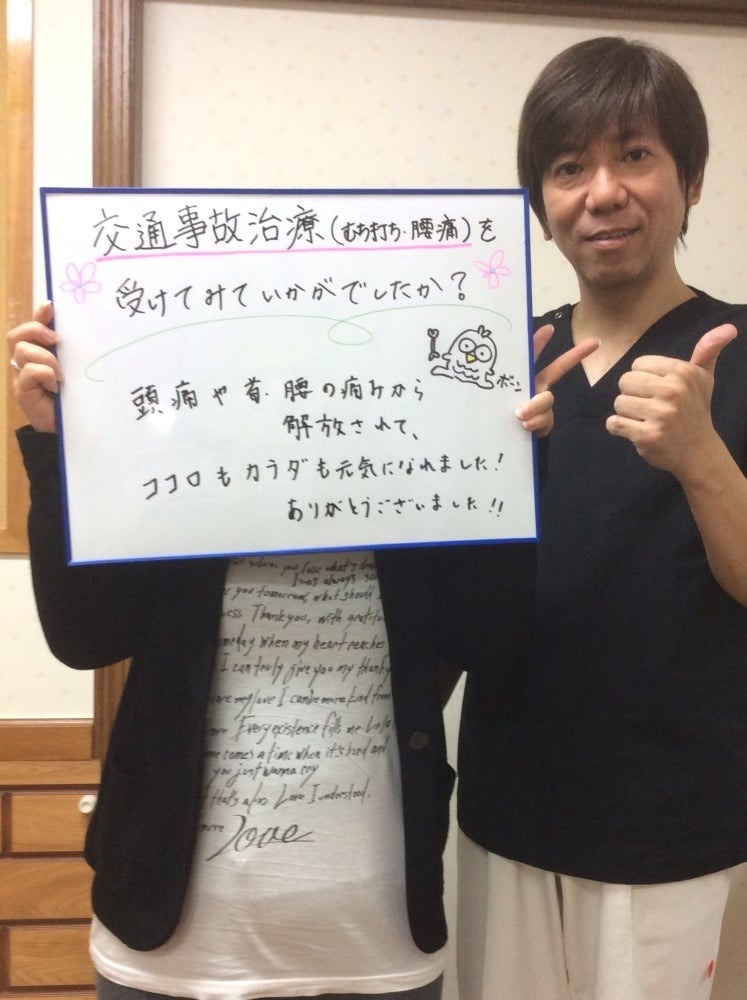 交通事故治療(むち打ち・腰痛)を
受けてみていかがでしたか?
ボーン
頭痛や首・腰の痛みから
解放されて、
ココロもカラダも元気になれました!
ありがとうございました!!
when you lose what's
I was always
you tomorrow, what should I
Thank you, with
when my heart reaches
I can truly give you my
my love I can be more kind from
Every existence fills me
comes a time when it's hard and
you just wanna cry
that's also Love I understood.
love